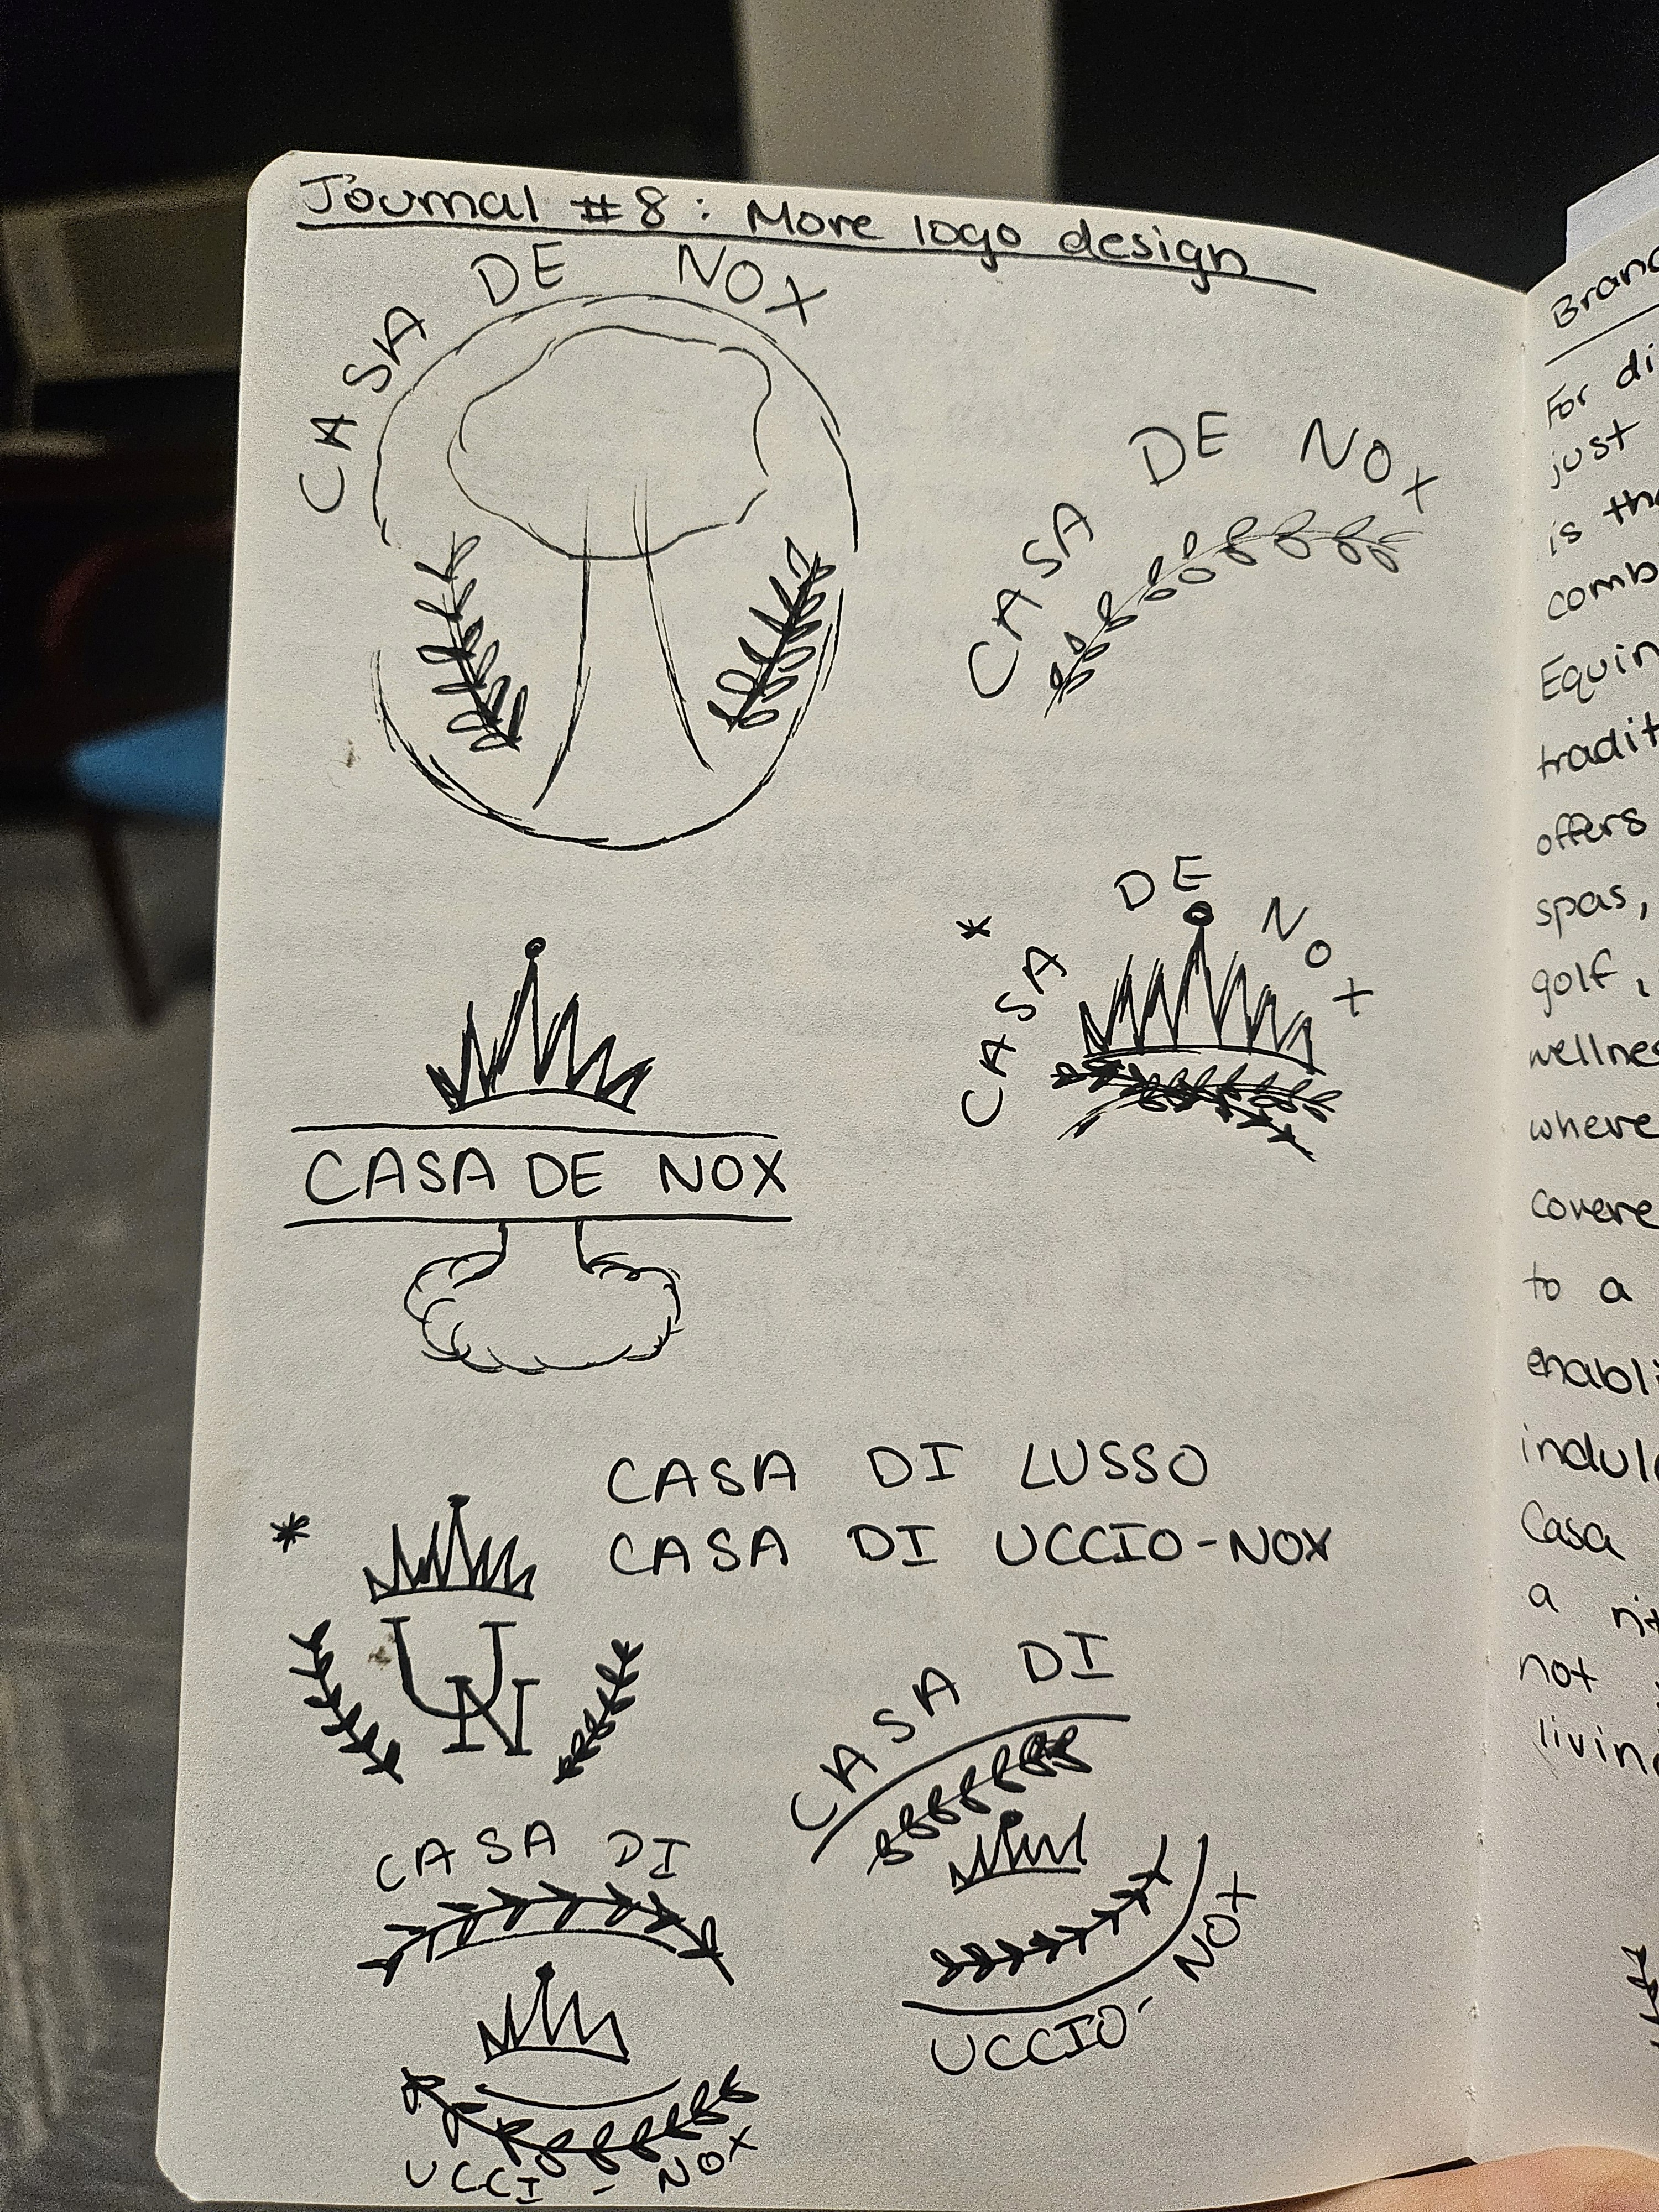 Journal #8: More logo design
CASA DE NOX
CASA DE NOX
* CASA DE NOX
CASA DE NOX
CASA DI LUSSO
CASA DI UCCIO-NOX
*
UN
CASA DI
UCCIO-NOX
CASA DI
UCCI-NOX
For di
just
is
comb
Equin
tradit
offers
spas,
golf,
wellnes
where
covere
to a
enabli
indul
Casa
a
not
livin